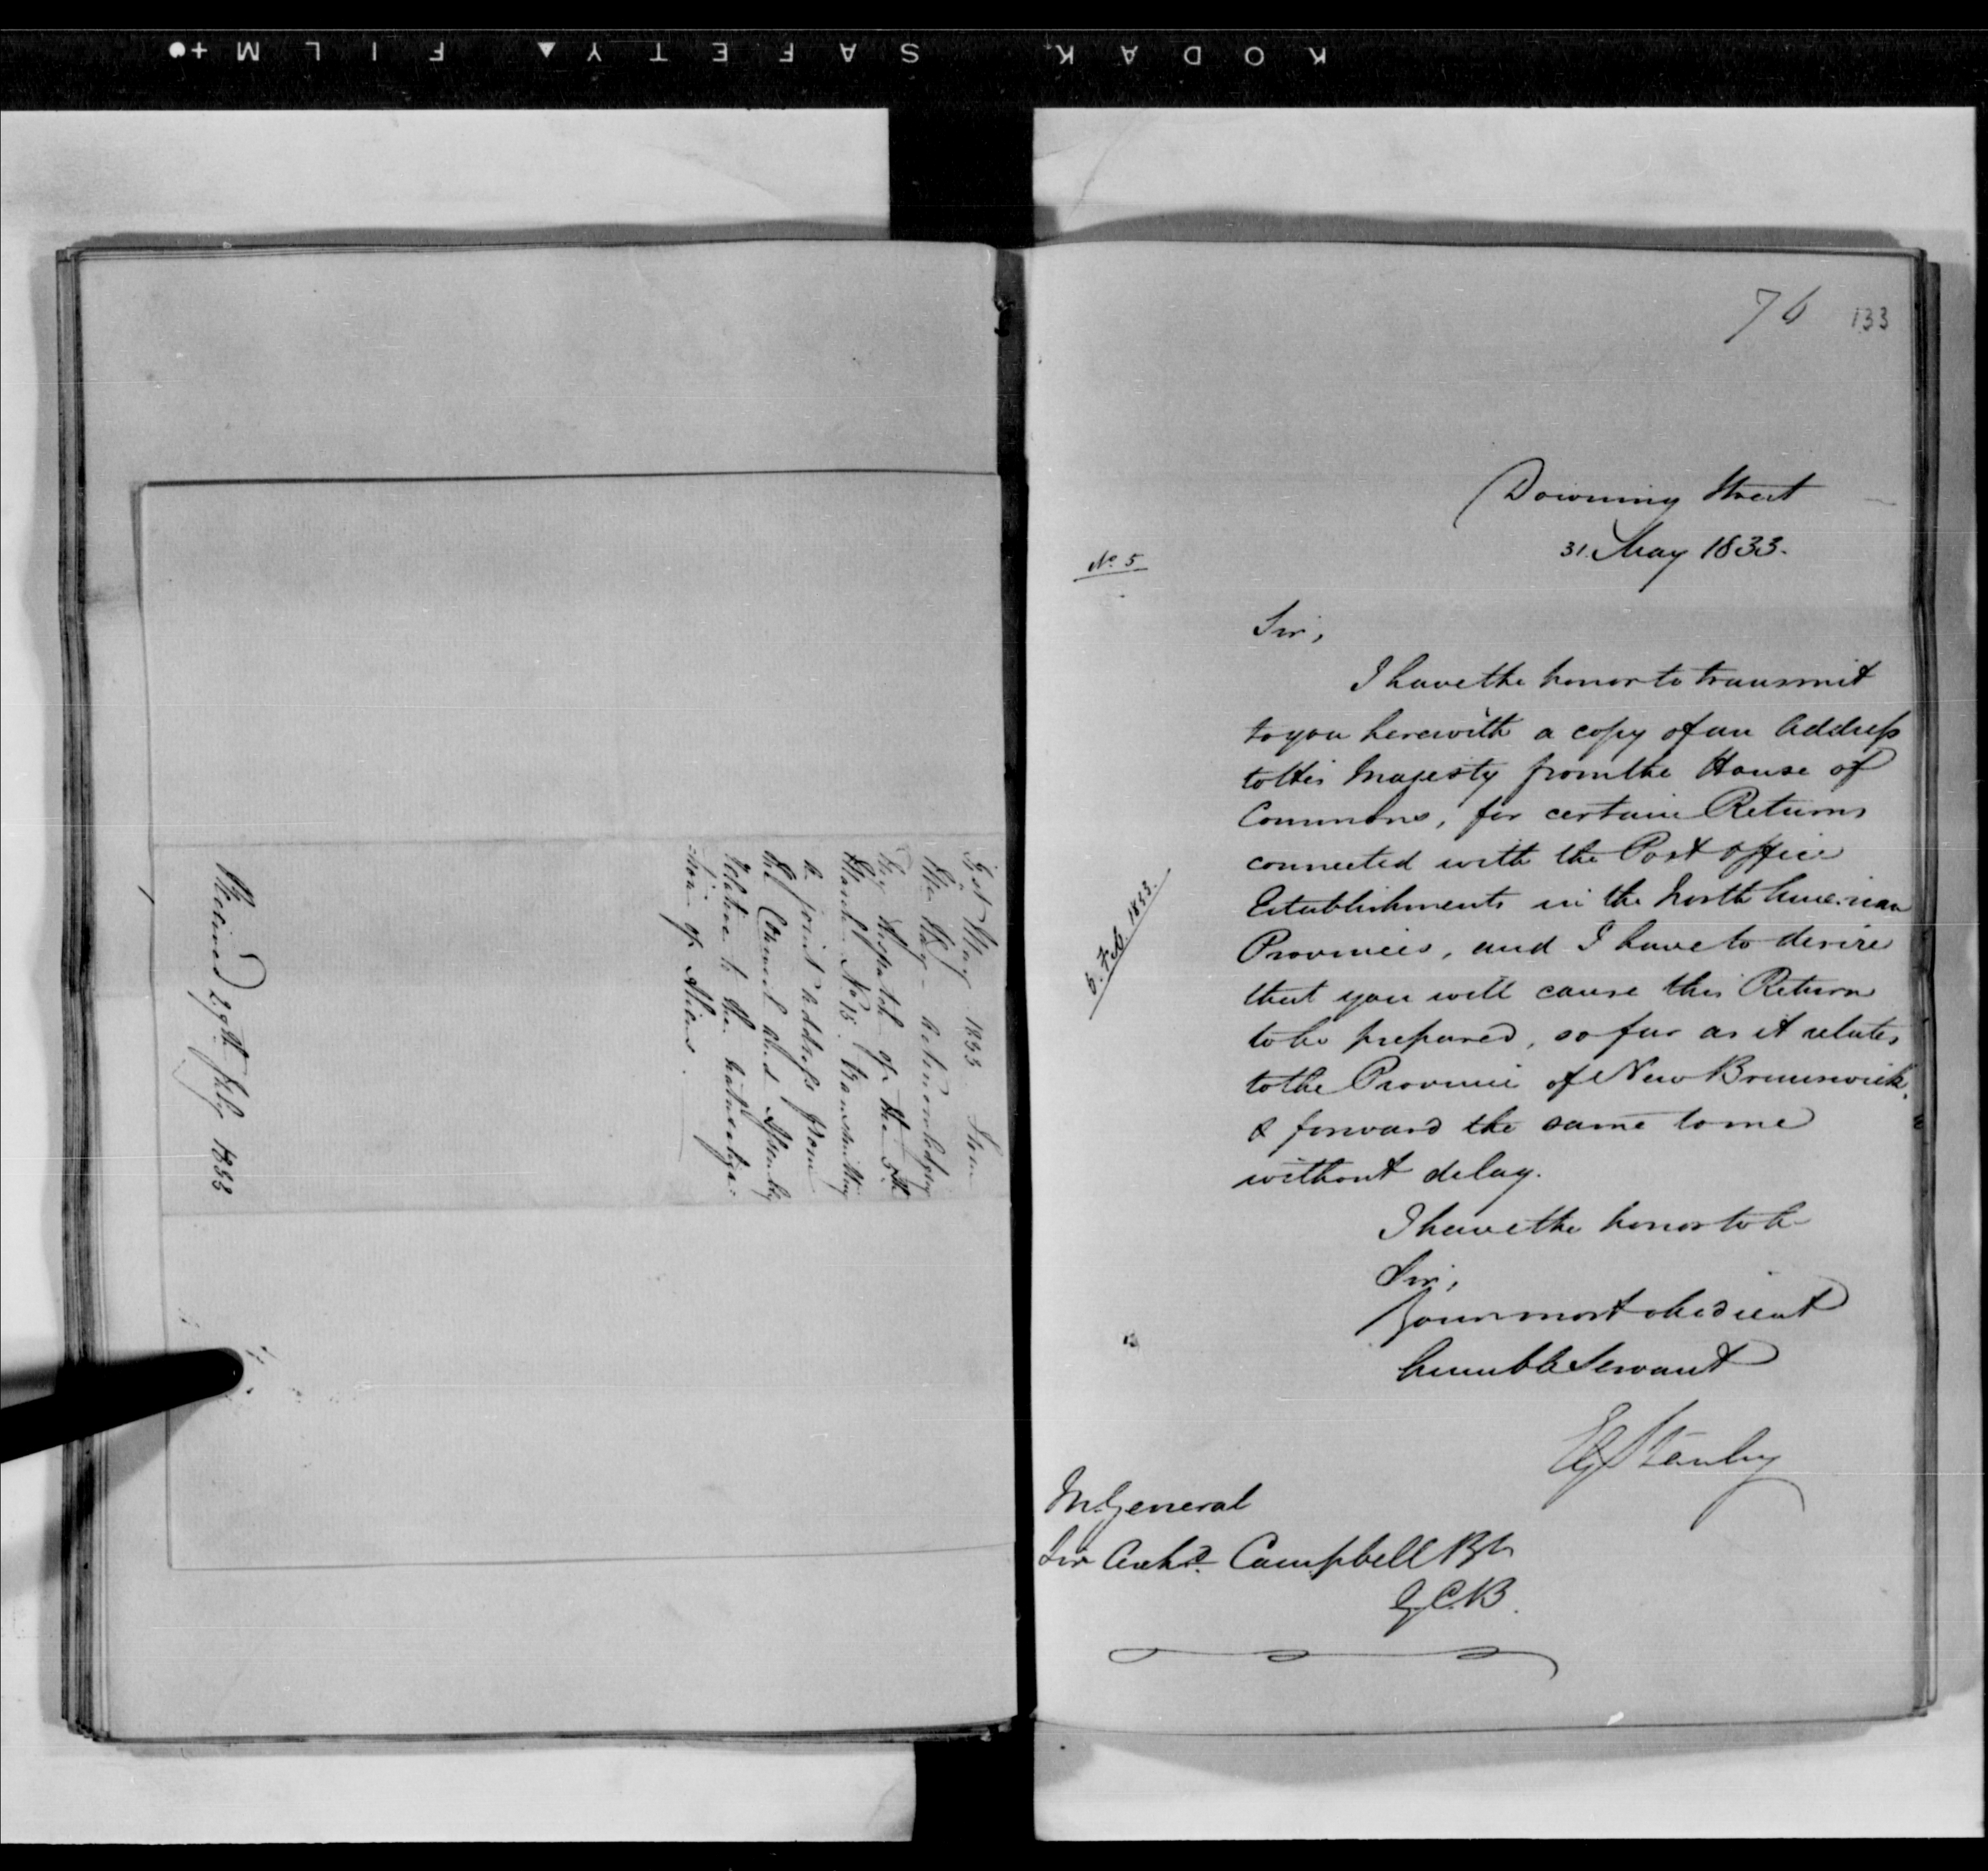 KODAK SAFETY FILM
31st May 1833
Mr Hay - acknowledging
Despatch of the 5th
March No 15. transmitting
a joint address from
the Council and Assembly
relative to the naturaliza:
:tion of Aliens.
Received 29th July 1833
76 133
Downing Street
31. May 1833.
No. 5
Sir,
I have the honor to transmit
to you herewith a copy of an Address
to His Majesty from the House of
Commons, for certain Returns
connected with the Post office
Establishments in the North American
Provinces, and I have to desire
that you will cause this Return
to be prepared, so far as it relates
to the Province of New Brunswick,
& forward the same to me
without delay.
5. Feb. 1833.
I have the honor to be
Sir,
Your most obedient
humble Servant
EG Stanley
M. General
Sir Archd. Campbell Bt
G.C.B.